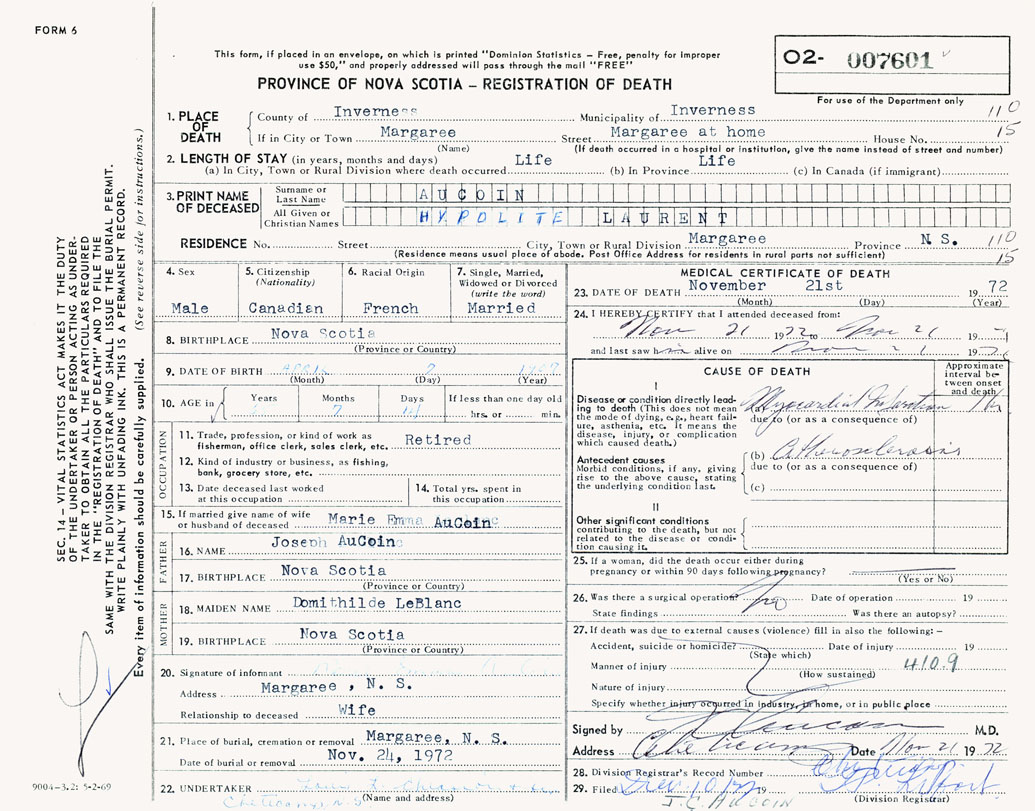 FORM 6
This form, if placed in an envelope, on which is printed "Dominion Statistics – Free, penalty for improper
use $50," and properly addressed will pass through the mail "FREE"
PROVINCE OF NOVA SCOTIA – REGISTRATION OF DEATH
O2- 007601
For use of the Department only
1. PLACE OF DEATH
County of Inverness Municipality of Inverness 110
If in City or Town Margaree Street Margaree at home House No. 15
(Name) (If death occurred in a hospital or institution, give the name instead of street and number)
2. LENGTH OF STAY (in years, months and days) Life Life
(a) In City, Town or Rural Division where death occurred (b) In Province (c) In Canada (if immigrant)
3. PRINT NAME OF DECEASED
Surname or Last Name AUCOIN
All Given or Christian Names HYPOLITE LAURENT
RESIDENCE No. Street City, Town or Rural Division Margaree Province N S. 110
(Residence means usual place of abode. Post Office Address for residents in rural parts not sufficient) 15
4. Sex
Male
5. Citizenship
(Nationality)
Canadian
6. Racial Origin
French
7. Single, Married,
Widowed or Divorced
(write the word)
Married
8. BIRTHPLACE Nova Scotia
(Province or Country)
9. DATE OF BIRTH
(Month) (Day) (Year)
10. AGE in Years Months Days If less than one day old
7 hrs. or min.
OCCUPATION
11. Trade, profession, or kind of work as Retired
fisherman, office clerk, sales clerk, etc.
12. Kind of industry or business, as fishing,
bank, grocery store, etc.
13. Date deceased last worked
at this occupation
14. Total yrs. spent in
this occupation
15. If married give name of wife
or husband of deceased Marie Emma AuCoin
FATHER
16. NAME Joseph AuCoin
17. BIRTHPLACE Nova Scotia
(Province or Country)
MOTHER
18. MAIDEN NAME Domithilde LeBlanc
19. BIRTHPLACE Nova Scotia
(Province or Country)
20. Signature of informant
Address Margaree , N. S.
Relationship to deceased Wife
21. Place of burial, cremation or removal Margaree, N. S.
Date of burial or removal Nov. 24, 1972
22. UNDERTAKER
(Name and address)
MEDICAL CERTIFICATE OF DEATH
23. DATE OF DEATH November 21st 19 72
(Month) (Day) (Year)
24. I HEREBY CERTIFY that I attended deceased from:
Nov 21 1972 to Nov 21 19
and last saw him alive on Nov 21 19
CAUSE OF DEATH
Approximate
interval be-
tween onset
and death
I
Disease or condition directly lead-
ing to death (This does not mean
the mode of dying, e.g., heart fail-
ure, asthenia, etc. It means the
disease, injury, or complication
which caused death.)
(a) Myocardial Infarction
due to (or as a consequence of)
Antecedent causes
Morbid conditions, if any, giving
rise to the above cause, stating
the underlying condition last.
(b)
due to (or as a consequence of)
(c)
II
Other significant conditions
contributing to the death, but not
related to the disease or condi-
tion causing it.
25. If a woman, did the death occur either during
pregnancy or within 90 days following pregnancy?
(Yes or No)
26. Was there a surgical operation? No Date of operation 19
State findings Was there an autopsy?
27. If death was due to external causes (violence) fill in also the following: –
Accident, suicide or homicide? Date of injury 19
(State which)
Manner of injury 410.9
(How sustained)
Nature of injury
Specify whether injury occurred in industry, in home, or in public place
Signed by M.D.
Address Date Nov 21 19 72
28. Division Registrar's Record Number
29. Filed Dec 10 19
J. G. AUCOIN (Division Registrar)
SEC. 14 – VITAL STATISTICS ACT MAKES IT THE DUTY
OF THE UNDERTAKER OR PERSON ACTING AS UNDER-
TAKER TO OBTAIN ALL THE PARTICULARS REQUIRED
IN THE "REGISTRATION OF DEATH" AND TO FILE THE
SAME WITH THE DIVISION REGISTRAR WHO SHALL ISSUE THE BURIAL PERMIT.
WRITE PLAINLY WITH UNFADING INK. THIS IS A PERMANENT RECORD.
Every item of information should be carefully supplied. (See reverse side for instructions.)
9004-3.2: 5-2-69